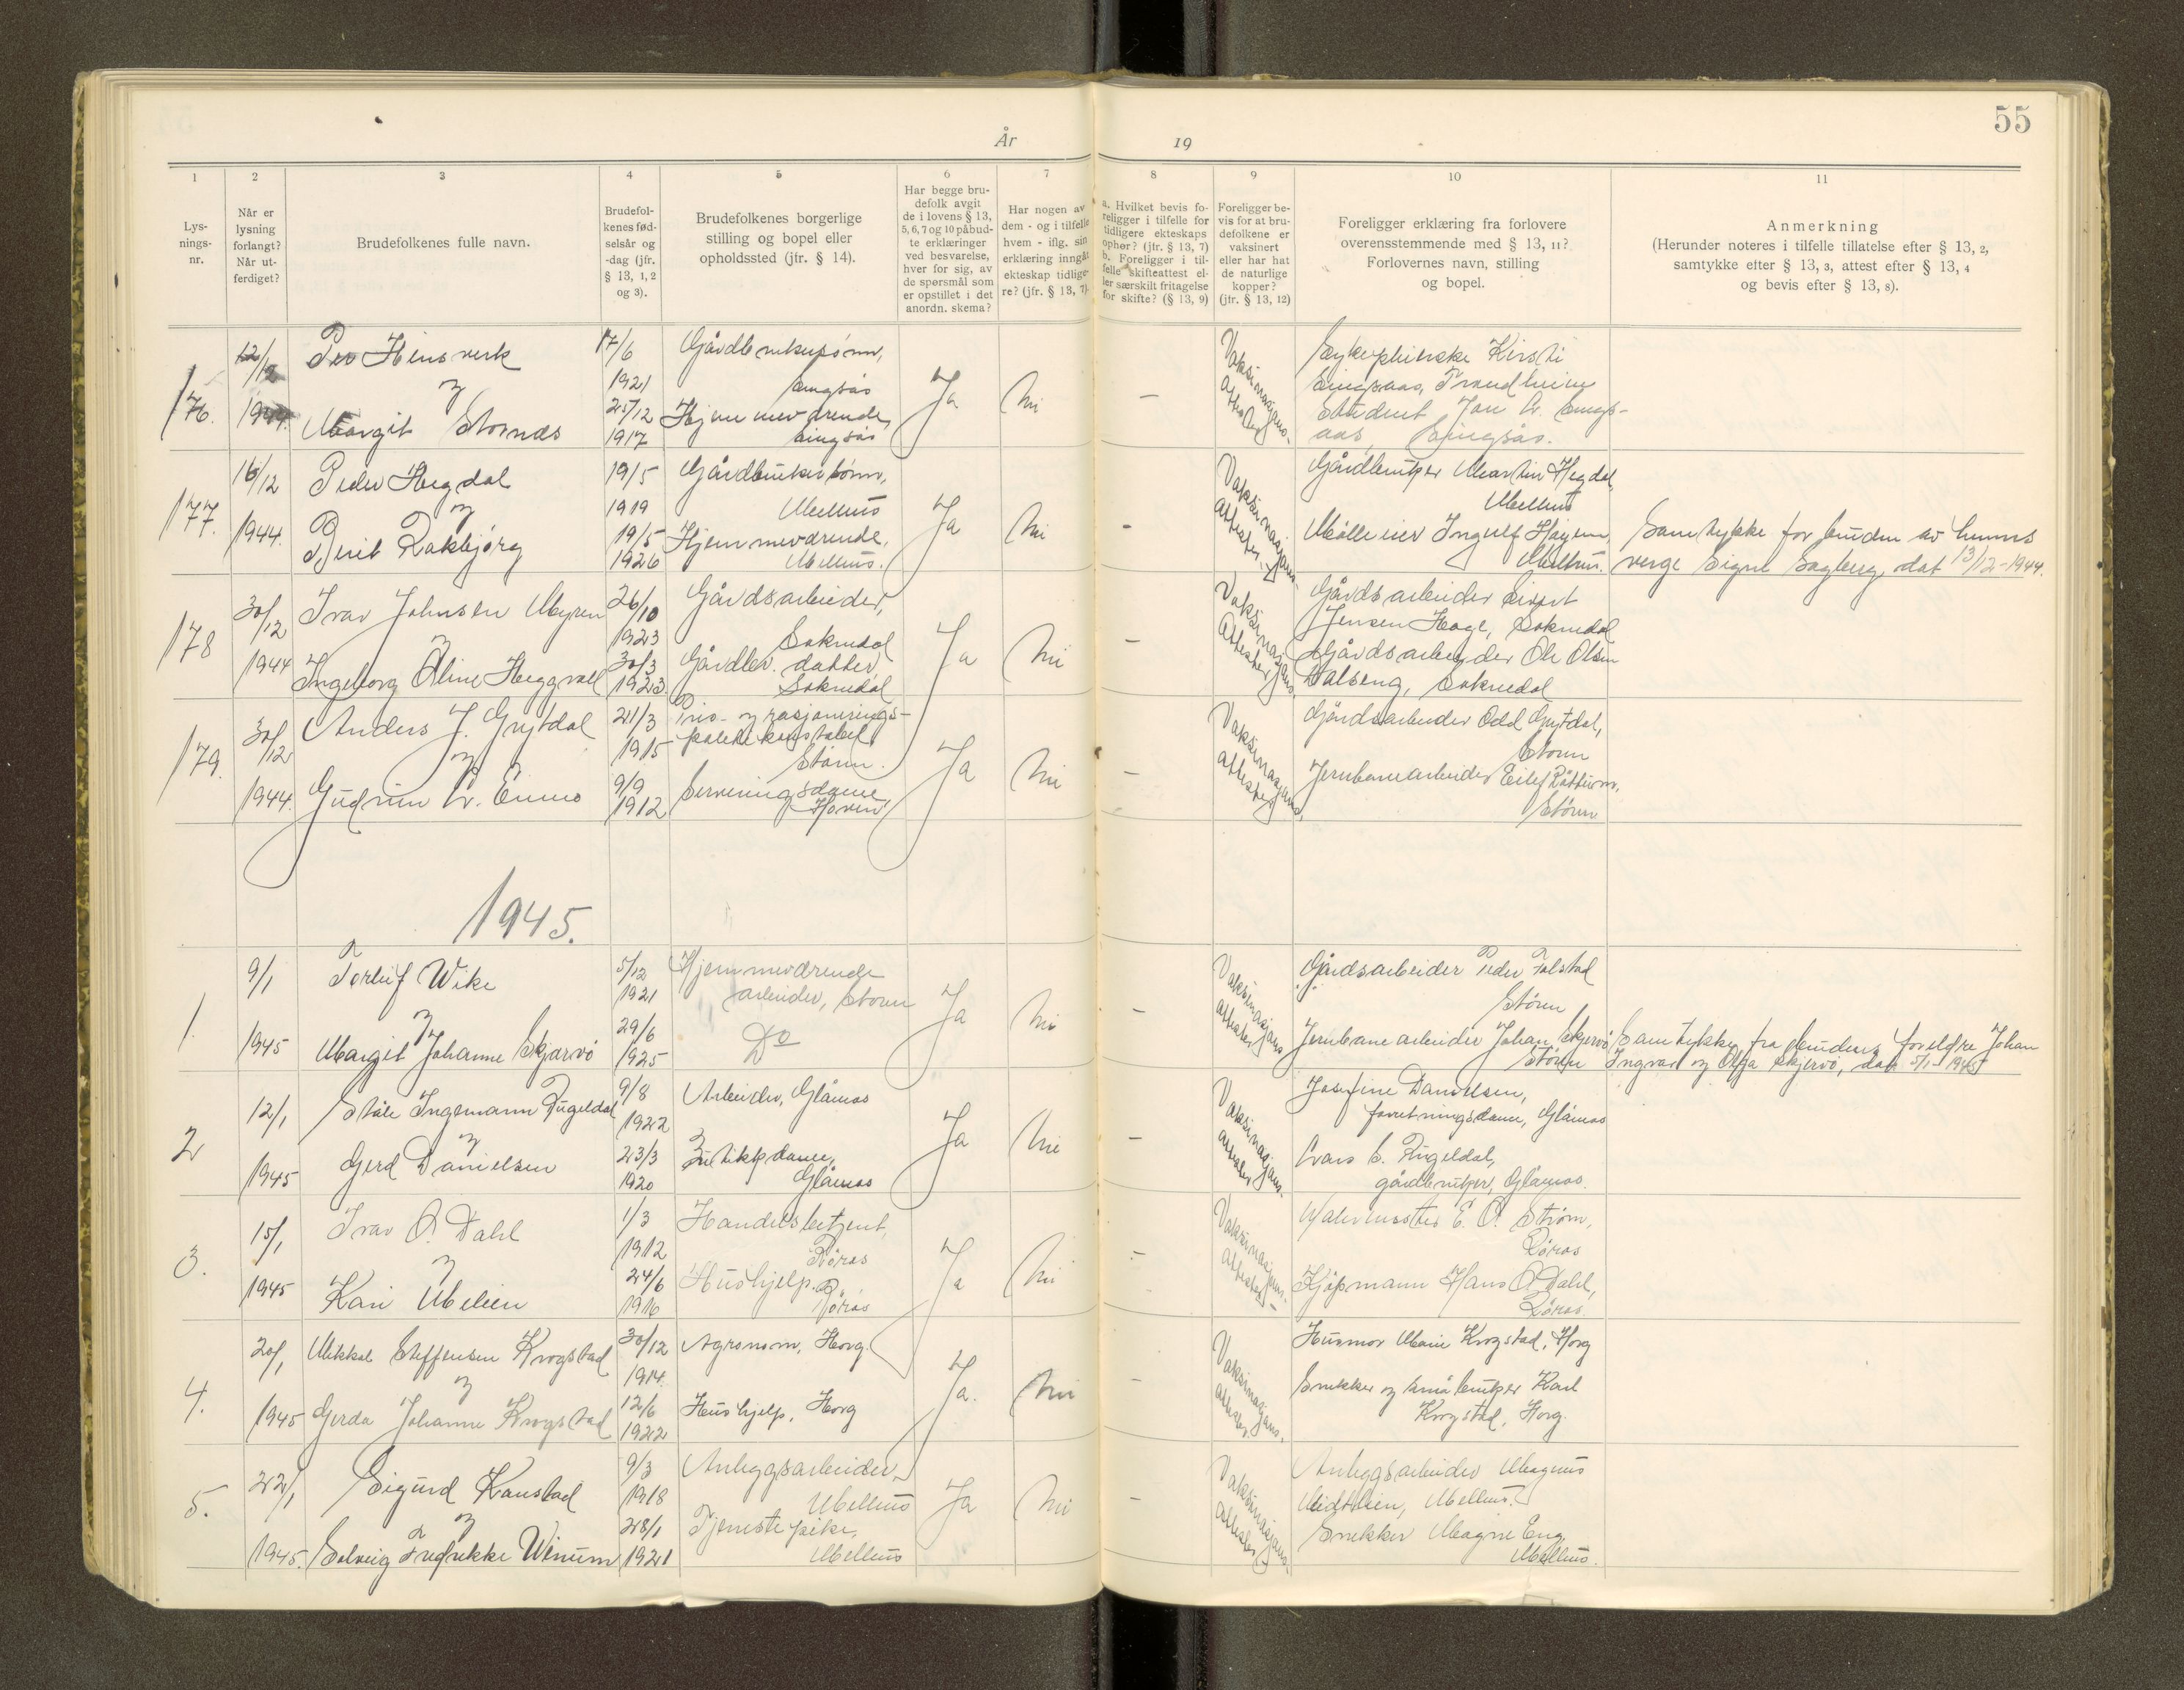 55
År 19
1 2 3 4 5 6 7 8 9 10 11
Lys-
nings-
nr.
Når er
lysning
forlangt?
Når ut-
ferdiget?
Brudefolkenes fulle navn.
Brudefol-
kenes fød-
selsår og
-dag (jfr.
§ 13, 1, 2
og 3).
Brudefolkenes borgerlige
stilling og bopel eller
opholdssted (jfr. § 14).
Har begge bru-
defolk avgit
de i lovens § 13,
5, 6, 7 og 10 påbud-
te erklæringer
ved besvarelse,
hver for sig, av
de spørsmål som
er opstillet i det
anordn. skema?
Har nogen av
dem - og i tilfelle
hvem - iflg. sin
erklæring inngåt
ekteskap tidlige-
re? (jfr. § 13, 7)
a. Hvilket bevis fo-
religger i tilfelle for
tidligere ekteskaps
ophør? (jfr. § 13, 7)
b. Foreligger i til-
felle skifteattest el-
ler særskilt fritagelse
for skifte? (§ 13, 9)
Foreligger be-
vis for at bru-
defolkene er
vaksinert
eller har hat
de naturlige
kopper?
(jfr. § 13, 12)
Foreligger erklæring fra forlovere
overensstemmende med § 13, 11?
Forlovernes navn, stilling
og bopel.
Anmerkning
(Herunder noteres i tilfelle tillatelse efter § 13, 2,
samtykke efter § 13, 3, attest efter § 13, 4
og bevis efter § 13, 8).
176.
12/12
1944.
Per Hinsverk
og
Margit Storaas
17/6
1921
25/12
1917
Gårdbrukersønn,
Singsås
Hjemmeværende,
Singsås
Ja
Nei
-
Vaksinasjons-
attester
Sykepleierske Kirsti
Singsaas, Trondheim
Student Jon A. Sings-
aas, Singsås.
177.
16/12
1944.
Peder Hegdal
og
Berit Rakbjørg
19/5
1919
19/5
1926
Gårdbrukersønn,
Melhus
Hjemmeværende,
Melhus.
Ja
Nei
-
Vaksinasjons-
attester
Gårdbruker Martin Hegdal,
Melhus
Mølleeier Ingulf Hagen,
Melhus.
Samtykke for bruden av hennes
verge Signe Sagberg, dat 13/12-1944.
178
30/12
1944
Ivar Johnsen Myren
og
Ingeborg Oline Heggvoll
26/10
1923
30/3
1923
Gårdsarbeider,
Soknedal
Gårdbr. datter,
Soknedal
Ja
Nei
-
Vaksinasjons-
attester
Gårdsarbeider Sivert
Jensen Hage, Soknedal
Gårdsarbeider Ole Olsen
Dalseng, Soknedal
179.
30/12
1944.
Anders J. Grytdal
og
Gudrun A. Enmo
21/3
1915
9/9
1912
Pris- og rasjonerings-
politi konstabel,
Støren.
Serveringsdame,
Hovin
Ja
Nei
-
Vaksinasjons-
attester
Gårdsarbeider Odd Grytdal,
Støren
Jernbanearbeider Eilif Råttum,
Støren
1945.
1.
9/1
1945
Torleif Wike
og
Margit Johanne Skjærvø
5/12
1921
29/6
1925
Hjemmeværende
arbeider, Støren
Do
Ja
Nei
-
Vaksinasjons-
attester
Gårdsarbeider Peder Folstad
Støren
Jernbanearbeider Johan Skjervø
Støren
Samtykke fra brudens foreldre Johan
Ingvar og Olga Skjervø, dat 5/1-1945
2
12/1
1945
Ståle Ingemann Rugeldal
og
Gerd Danielsen
9/8
1922
23/3
1920
Arbeider, Glåmos
Butikkdame,
Glåmos
Ja
Nei
-
Vaksinasjons-
attester
Josefine Danielsen,
forretningsdame, Glåmos
Lars S. Rugeldal,
gårdbruker, Glåmos.
3.
15/1
1945
Ivar O. Dahl
og
Kari Mølien
1/3
1912
24/6
1916
Handelsbetjent,
Røros
Hushjelp.
Røros
Ja
Nei
-
Vaksinasjons-
attester
E. O. Strøm,
Røros
Kjøpmann Hans O. Dahl,
Røros.
4.
20/1
1945
Mikkel Steffensen Krogstad
og
Gerda Johanne Krogstad
30/12
1914
12/6
1922
Agronom, Horg.
Hushjelp, Horg
Ja.
Nei
-
Vaksinasjons-
attester.
Husmor Marie Krogstad, Horg
Snekker og småbruker Karl
Krogstad, Horg.
5.
22/1
1945.
Sigurd Kanstad
og
Solveig Fredrikke Winum
9/3
1918
28/1
1921
Anleggsarbeider,
Melhus
Tjenestepike,
Melhus
Ja
Nei
-
Vaksinasjons-
attester
Anleggsarbeider Magnus
Midtlien, Melhus.
Snekker Magne Eng.
Melhus.